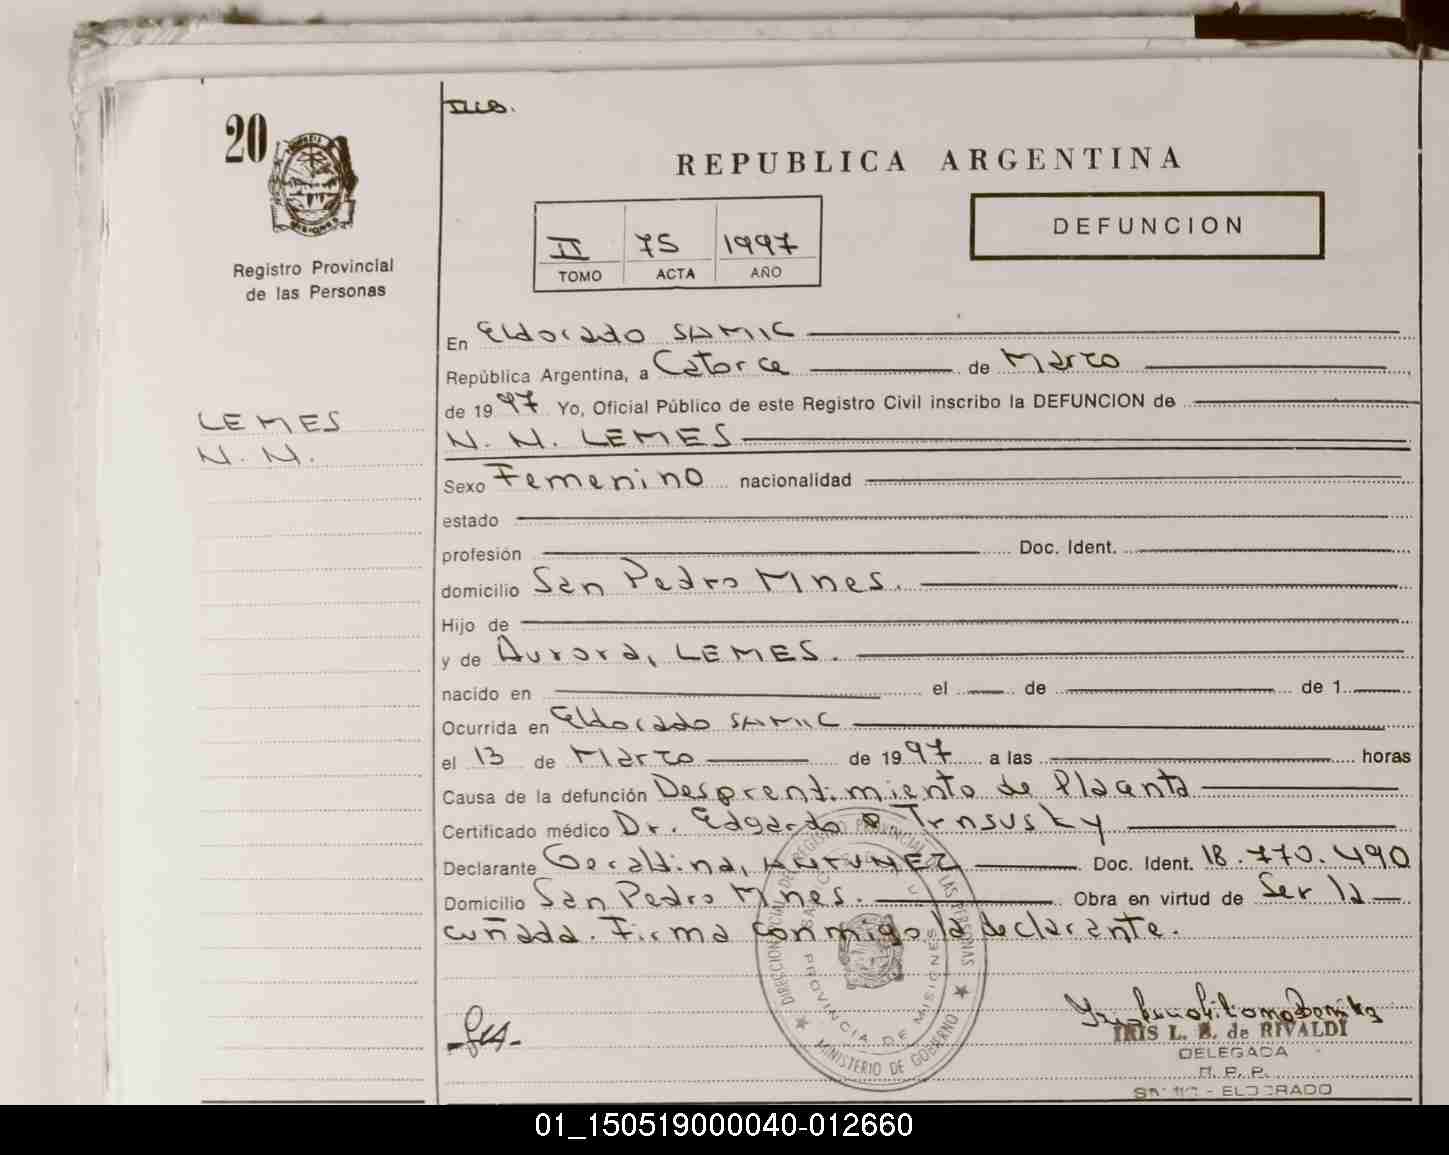 IUB.
20
REPUBLICA ARGENTINA
II 75 1997
TOMO ACTA AÑO
DEFUNCION
Registro Provincial
de las Personas
LEMES
N. N.
En Eldorado SAMIC
República Argentina, a Catorce de Marzo
de 1997 Yo, Oficial Público de este Registro Civil inscribo la DEFUNCION de
N. N. LEMES
Sexo Femenino nacionalidad
estado
profesión Doc. Ident.
domicilio San Pedro Mnes.
Hijo de
y de Aurora, LEMES.
nacido en el de de 1
Ocurrida en Eldorado SAMIC
el 13 de Marzo de 1997 a las horas
Causa de la defunción Desprendimiento de Placnta
Certificado médico Dr. Edgardo Trnsusky
Declarante Geraldina, ANTUNEZ Doc. Ident. 18.770.490
Domicilio San Pedro Mnes. Obra en virtud de Ser la
cuñada. Firma conmigo la declarante.
DIRECCION PROVINCIAL DEL REGISTRO PROVINCIAL DE LAS PERSONAS
PROVINCIA DE MISIONES
MINISTERIO DE GOBIERNO
IRIS L. B. de RIVALDI
DELEGADA
R. P. P.
SAMIC - ELDORADO
01_150519000040-012660